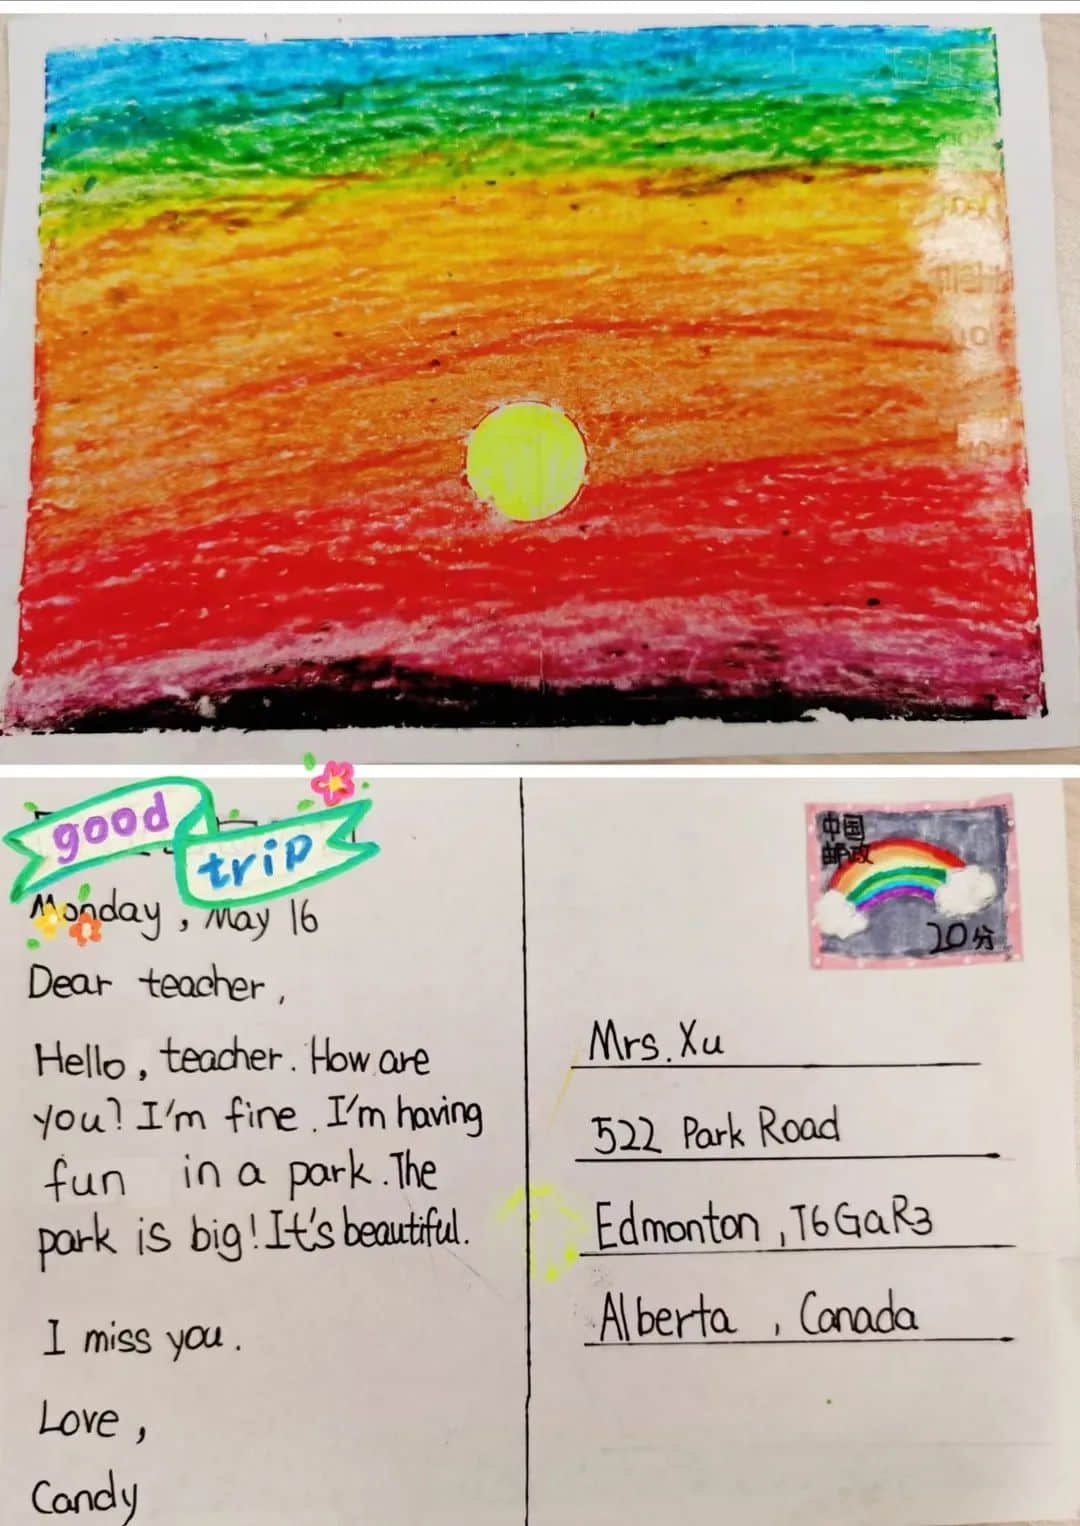 good
trip
Monday, May 16
Dear teacher,
Hello, teacher. How are
you? I'm fine. I'm having
fun in a park. The
park is big! It's beautiful.
I miss you.
Love,
Candy
中国
邮政
20分
Mrs. Xu
522 Park Road
Edmonton, T6GaR3
Alberta, Canada